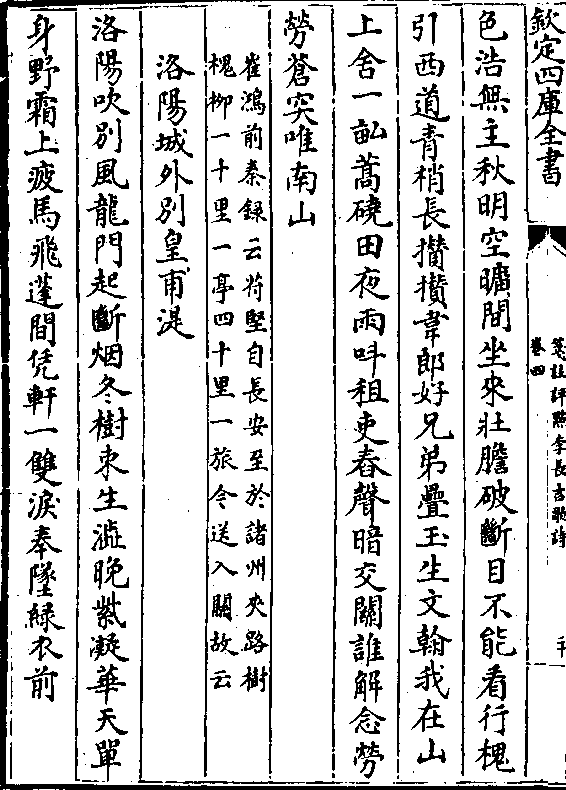 欽定四庫全書
箋註評點李長吉歌詩
卷四
色浩無主秋明空曠間坐來壯膽破斷目不能看行槐
引西道青梢長攢攢韋郎好兄弟疊玉生文翰我在山
上舍一畝蒿磽田夜雨呌租吏舂聲暗交關誰解念勞
勞蒼突唯南山
崔鴻前秦録云苻堅自長安至於諸州夾路樹
槐栁一十里一亭四十里一旅今送入關故云
洛陽城外別皇甫湜
洛陽吹別風龍門起斷烟冬樹束生澁晚紫凝華天單
身野霜上疲馬飛蓬間凭軒一雙淚奉墜緑衣前